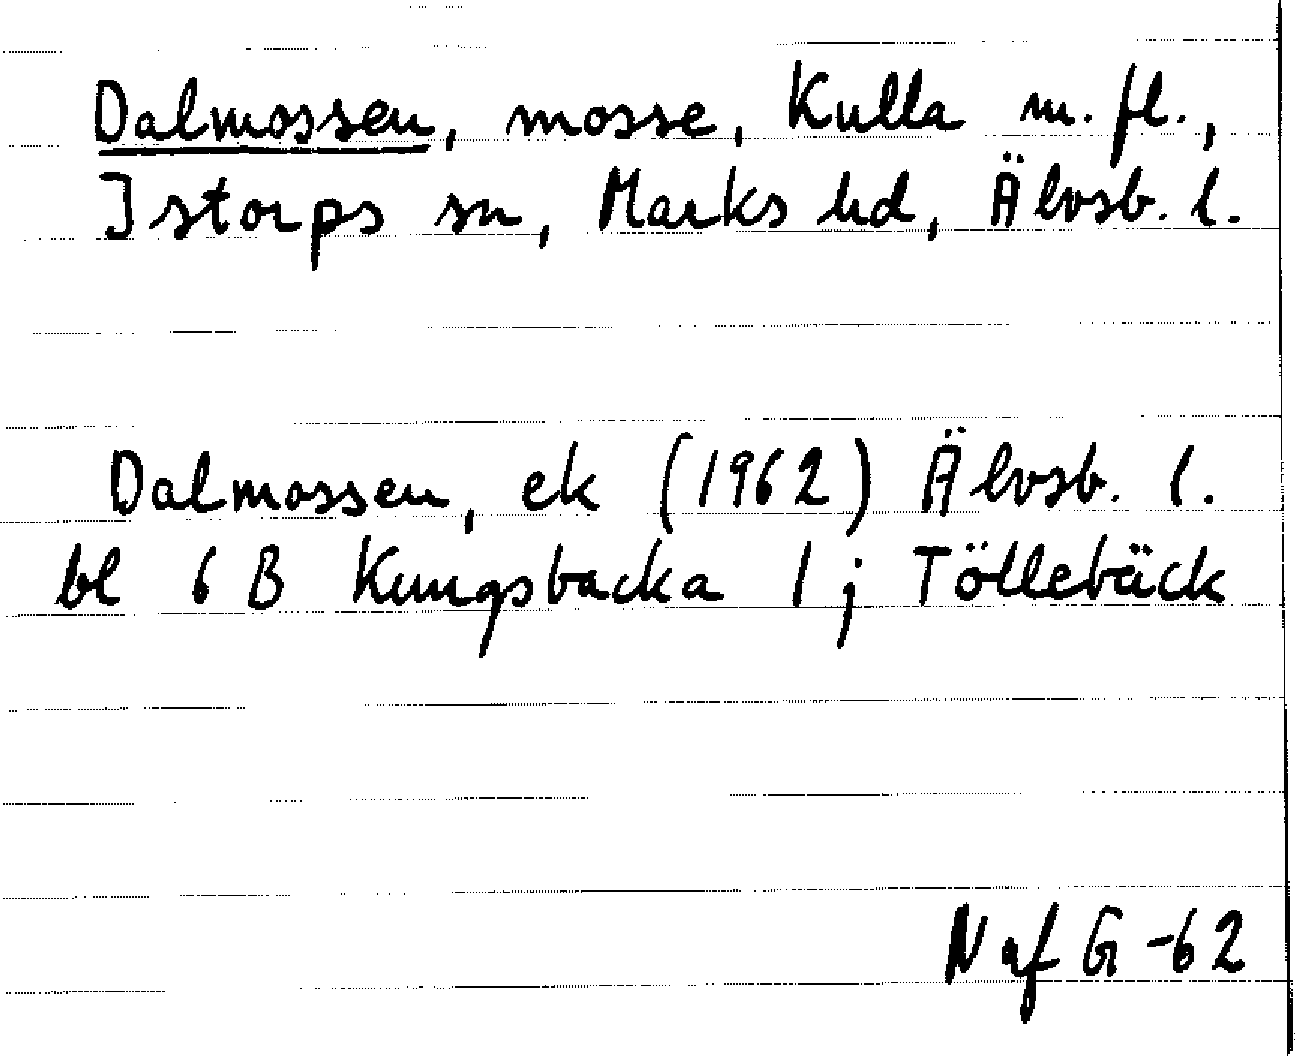 Dalmossen, mosse, Kulla m. fl.,
Istorps sn, Marks hd, Älvsb. l.
Dalmossen, ek (1962) Älvsb. l.
bl 6 B Kungsbacka 1 j Töllebäck
N af G -62